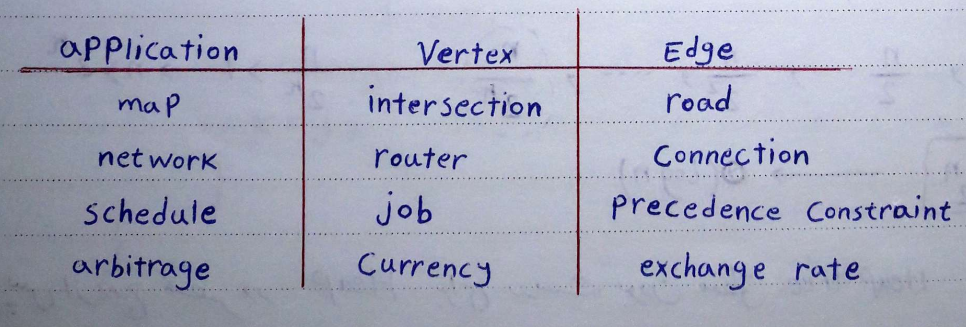 application Vertex Edge
map intersection road
network router Connection
schedule job Precedence Constraint
arbitrage Currency exchange rate